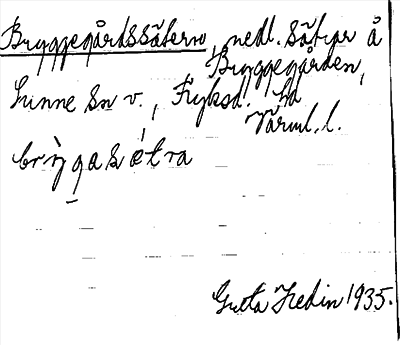 Bryggegårdssätern, nedl. säter å
Bryggegården,
Sunne sn v., Fryksd. hd
Värml. l.
brỳgasétra
Greta Hedin 1935.